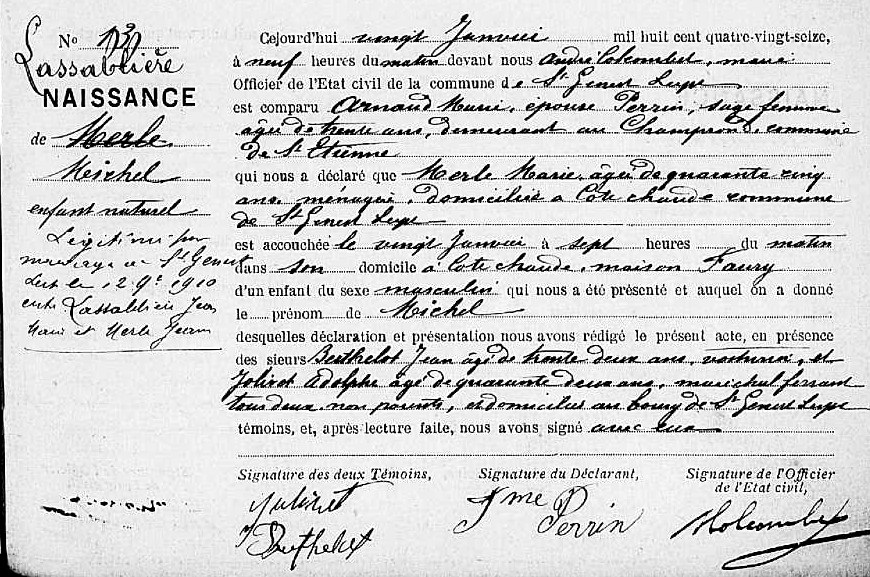 Nº 13
Lassablière
NAISSANCE
de Merle
Michel
enfant naturel
Légitimé par
mariage à St Genest
Lerpt le 12 9e 1910
entre Lassablière Jean
Marie et Merle Jeanne
Cejourd'hui vingt Janvier mil huit cent quatre-vingt-seize,
à neuf heures du matin devant nous André Colcombet, maire
Officier de l'Etat civil de la commune de St Genest Lerpt
est comparu Arnaud Marie, épouse Perrin, sage femme
âgée de trente ans, demeurant au Champrond commune
de St Etienne
qui nous a déclaré que Merle Marie, âgée de quarante cinq
ans, ménagère, domiciliée à Côte chaude commune
de St Genest Lerpt
est accouchée le vingt Janvier à sept heures du matin
dans son domicile à Côte chaude, maison Faury
d'un enfant du sexe masculin qui nous a été présenté et auquel on a donné
le prénom de Michel
desquelles déclaration et présentation nous avons rédigé le présent acte, en présence
des sieurs Berthelot Jean âgé de trente deux ans, voiturier, et
Jolivet Adolphe âgé de quarante deux ans, maréchal ferrant
tous deux non parents, et domiciliés au bourg de St Genest Lerpt
témoins, et, après lecture faite, nous avons signé avec eux
Signature des deux Témoins, Signature du Déclarant, Signature de l'Officier
de l'Etat civil,
Jolivet
Berthelot
Fme Perrin
Colcombet